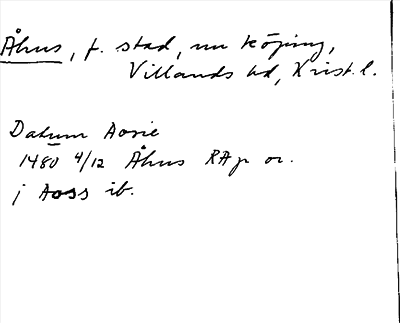 Åhus, f. stad, nu köping,
Villands hd, Krist. l.
Datum Aosie
1480 4/12 Åhus RAp or.
i Aoss ib.